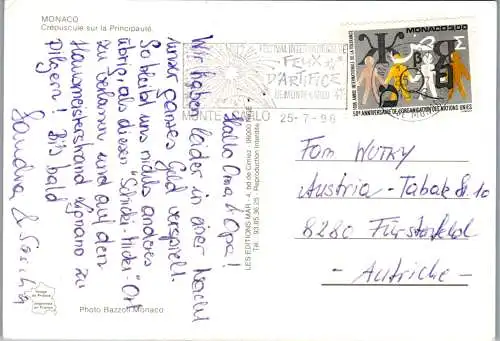 MONACO
Crépuscule sur la Principauté
Hallo Oma & Opa!
Wir haben leider in einer Nacht
unser ganzes Geld verspielt.
So bleibt uns nichts anderes
übrig, als diesen "Schicki-Micki"-Ort
zu verlassen und auf den
Hausmeisterstrand zu
pilgern! Bis bald
Sandra &
Photo Bazzoli Monaco
LES EDITIONS MAR - 4, bd de Cimiez - 06000 Nice
Tél. : 93.85.36.25 - Reproduction interdite
FESTIVAL INTERNATIONAL DE
FEUX
D'ARTIFICE
DE MONTE-CARLO
MONTE-CARLO
25-7-96
MONACO 3,00
1995 ANNEE INTERNATIONALE DE LA TOLERANCE
50e ANNIVERSAIRE DE L'ORGANISATION DES NATIONS UNIES
Fam WUTKY
Austria - Tabak St. 10
8280 Fürstenfeld
- Autriche -